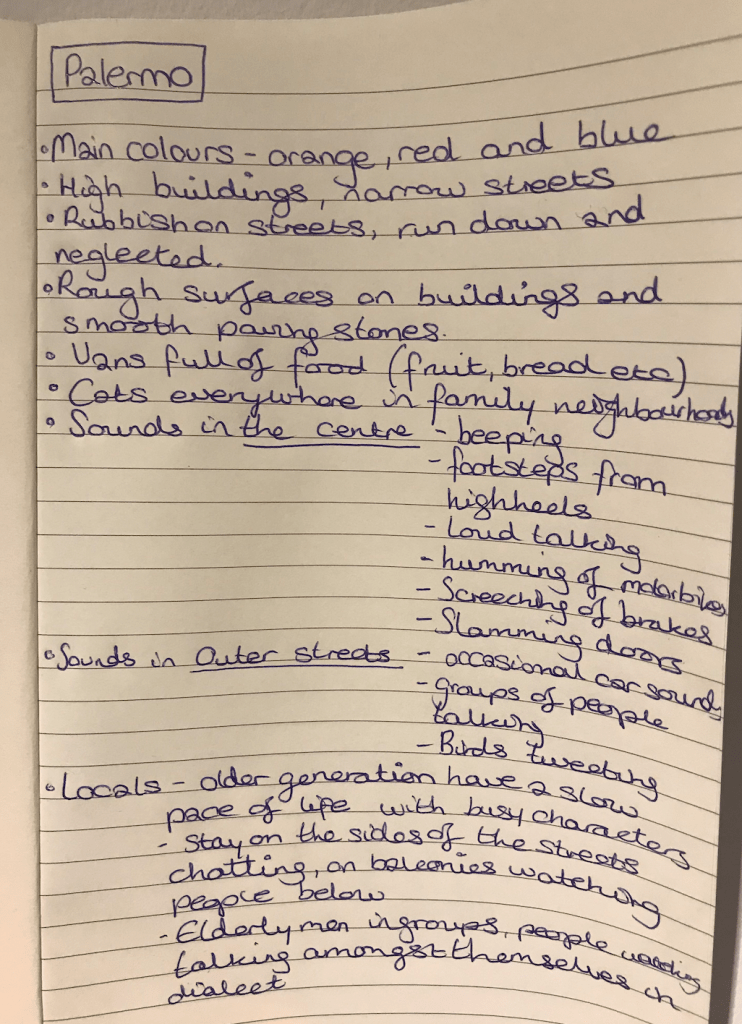 Palermo
• Main colours - orange, red and blue
• High buildings, narrow streets
• Rubbish on streets, run down and
neglected.
• Rough surfaces on buildings and
smooth paving stones.
• Vans full of food (fruit, bread etc)
• Cats everywhere in family neighbourhoods
• Sounds in the centre - beeping
- footsteps from
highheels
- Loud talking
- humming of motorbikes
- Screeching of brakes
- Slamming doors
• Sounds in Outer streets - occasional car sounds
- groups of people
talking
- Birds tweeting
• Locals - older generation have a slow
pace of life with busy characters
- Stay on the sides of the streets
chatting, on balconies watching
people below
- Elderly men in groups, people
talking amongst themselves in
dialect